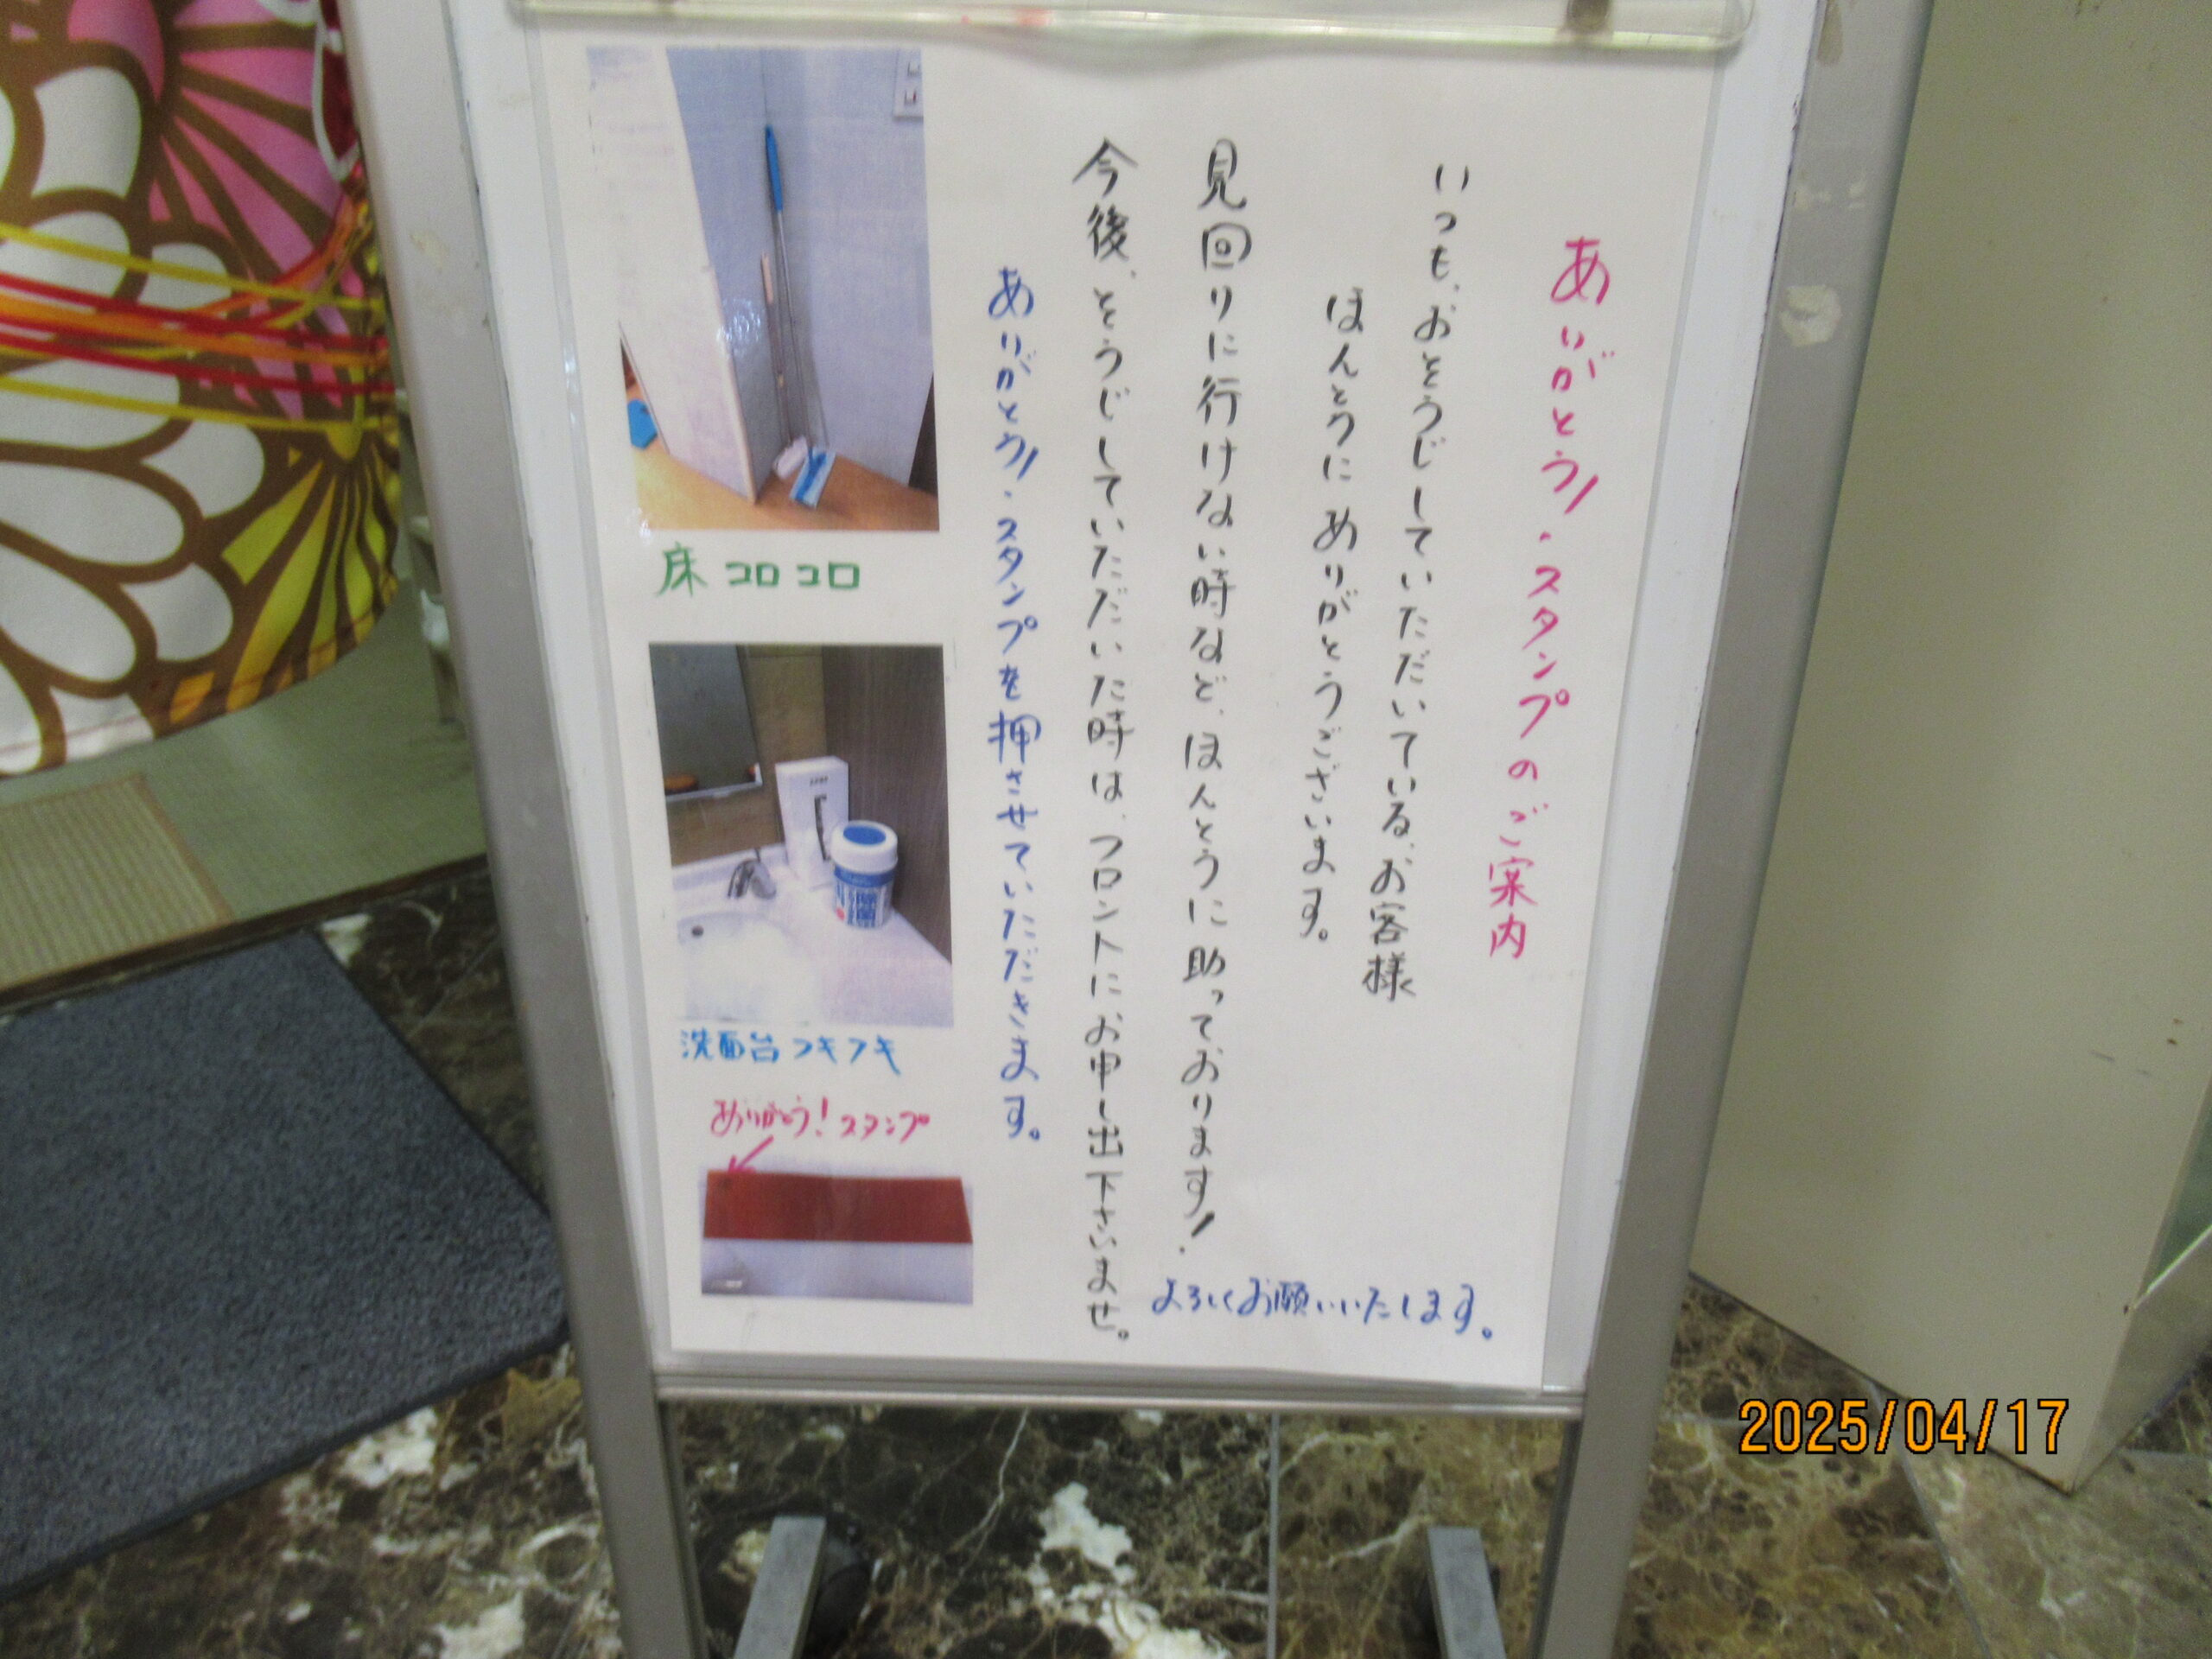 ありがとう!・スタンプのご案内
いつも、おそうじしていただいている、お客様
ほんとうに ありがとうございます。
見回りに行けない時など、ほんとうに助っております!
今後、そうじしていただいた時は、フロントにお申し出下さいませ。
ありがとう!・スタンプを押させていただきます。
よろしくお願いいたします。
床コロコロ
除菌
洗面台フキフキ
ありがとう!スタンプ
2025/04/17